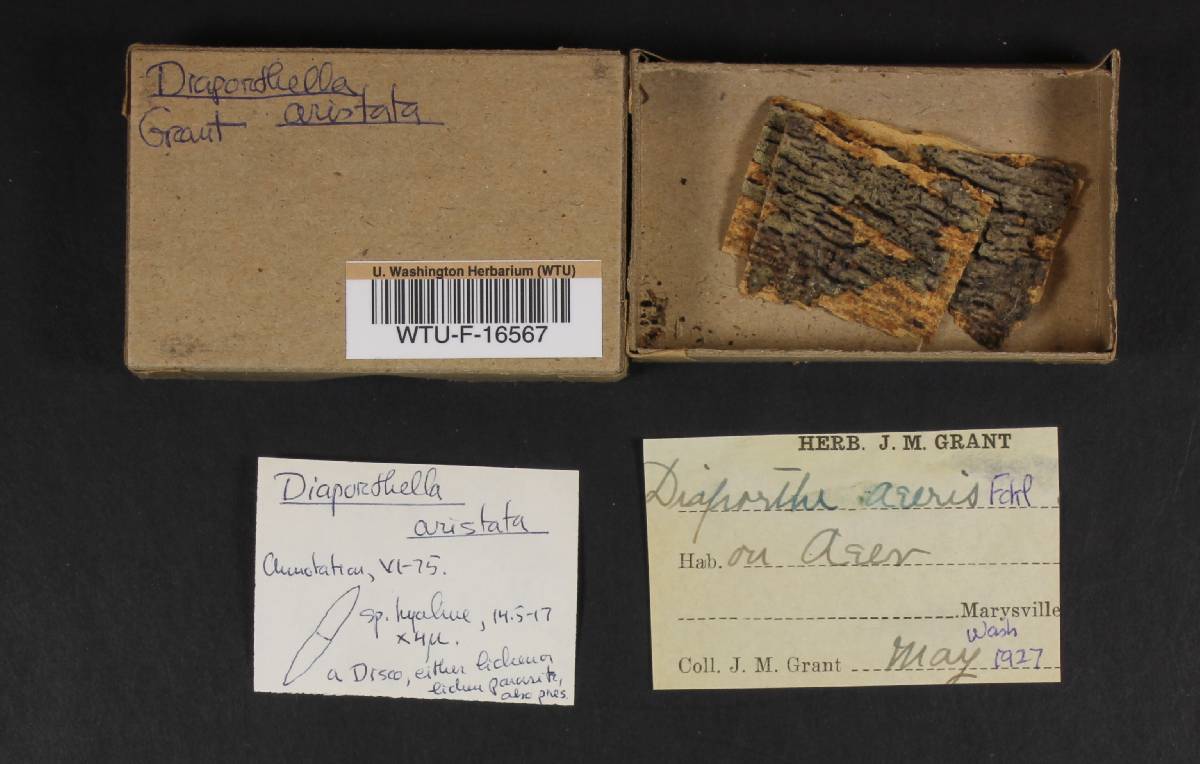 Diaporthella
aristata
Grant
U. Washington Herbarium (WTU)
WTU-F-16567
Diaporthella
aristata
Annotation, VI-75.
sp. hyaline, 14.5-17
x 4µ.
a Disco, either lichen or
lichen parasite,
also pres.
HERB. J. M. GRANT
Diaporthe aceris Fckl
Hab. on Acer
Marysville
Wash
Coll. J. M. Grant May 1927